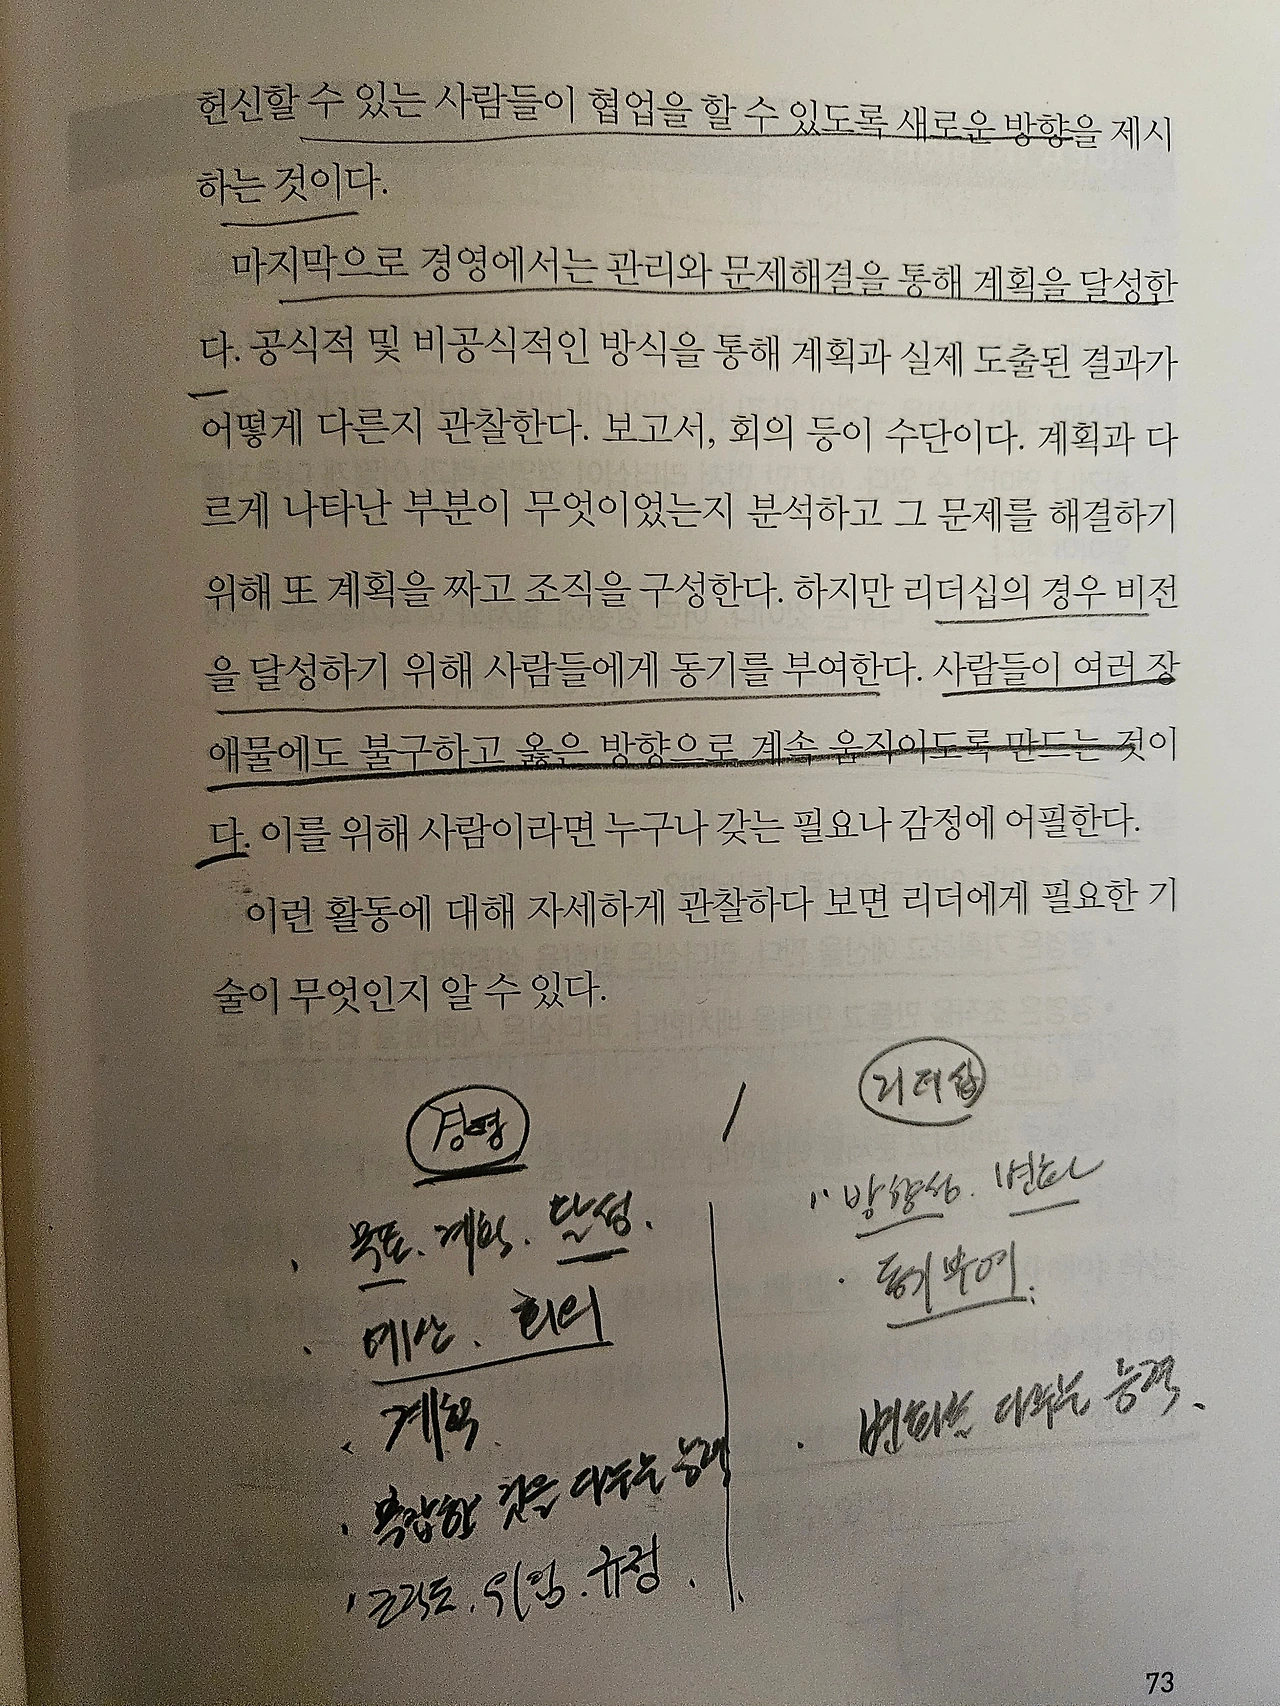 헌신할 수 있는 사람들이 협업을 할 수 있도록 새로운 방향을 제시
하는 것이다.
마지막으로 경영에서는 관리와 문제해결을 통해 계획을 달성한
다. 공식적 및 비공식적인 방식을 통해 계획과 실제 도출된 결과가
어떻게 다른지 관찰한다. 보고서, 회의 등이 수단이다. 계획과 다
르게 나타난 부분이 무엇이었는지 분석하고 그 문제를 해결하기
위해 또 계획을 짜고 조직을 구성한다. 하지만 리더십의 경우 비전
을 달성하기 위해 사람들에게 동기를 부여한다. 사람들이 여러 장
애물에도 불구하고 옳은 방향으로 계속 움직이도록 만드는 것이
다. 이를 위해 사람이라면 누구나 갖는 필요나 감정에 어필한다.
이런 활동에 대해 자세하게 관찰하다 보면 리더에게 필요한 기
술이 무엇인지 알 수 있다.
경영 / 리더십
· 목표. 계획. 달성.
· 예산. 회의
· 계획.
· 복잡한 것을 다루는 능력
· 조직도. 위험. 규정.
방향성. 변화
· 동기부여.
· 변화를 다루는 능력.
73